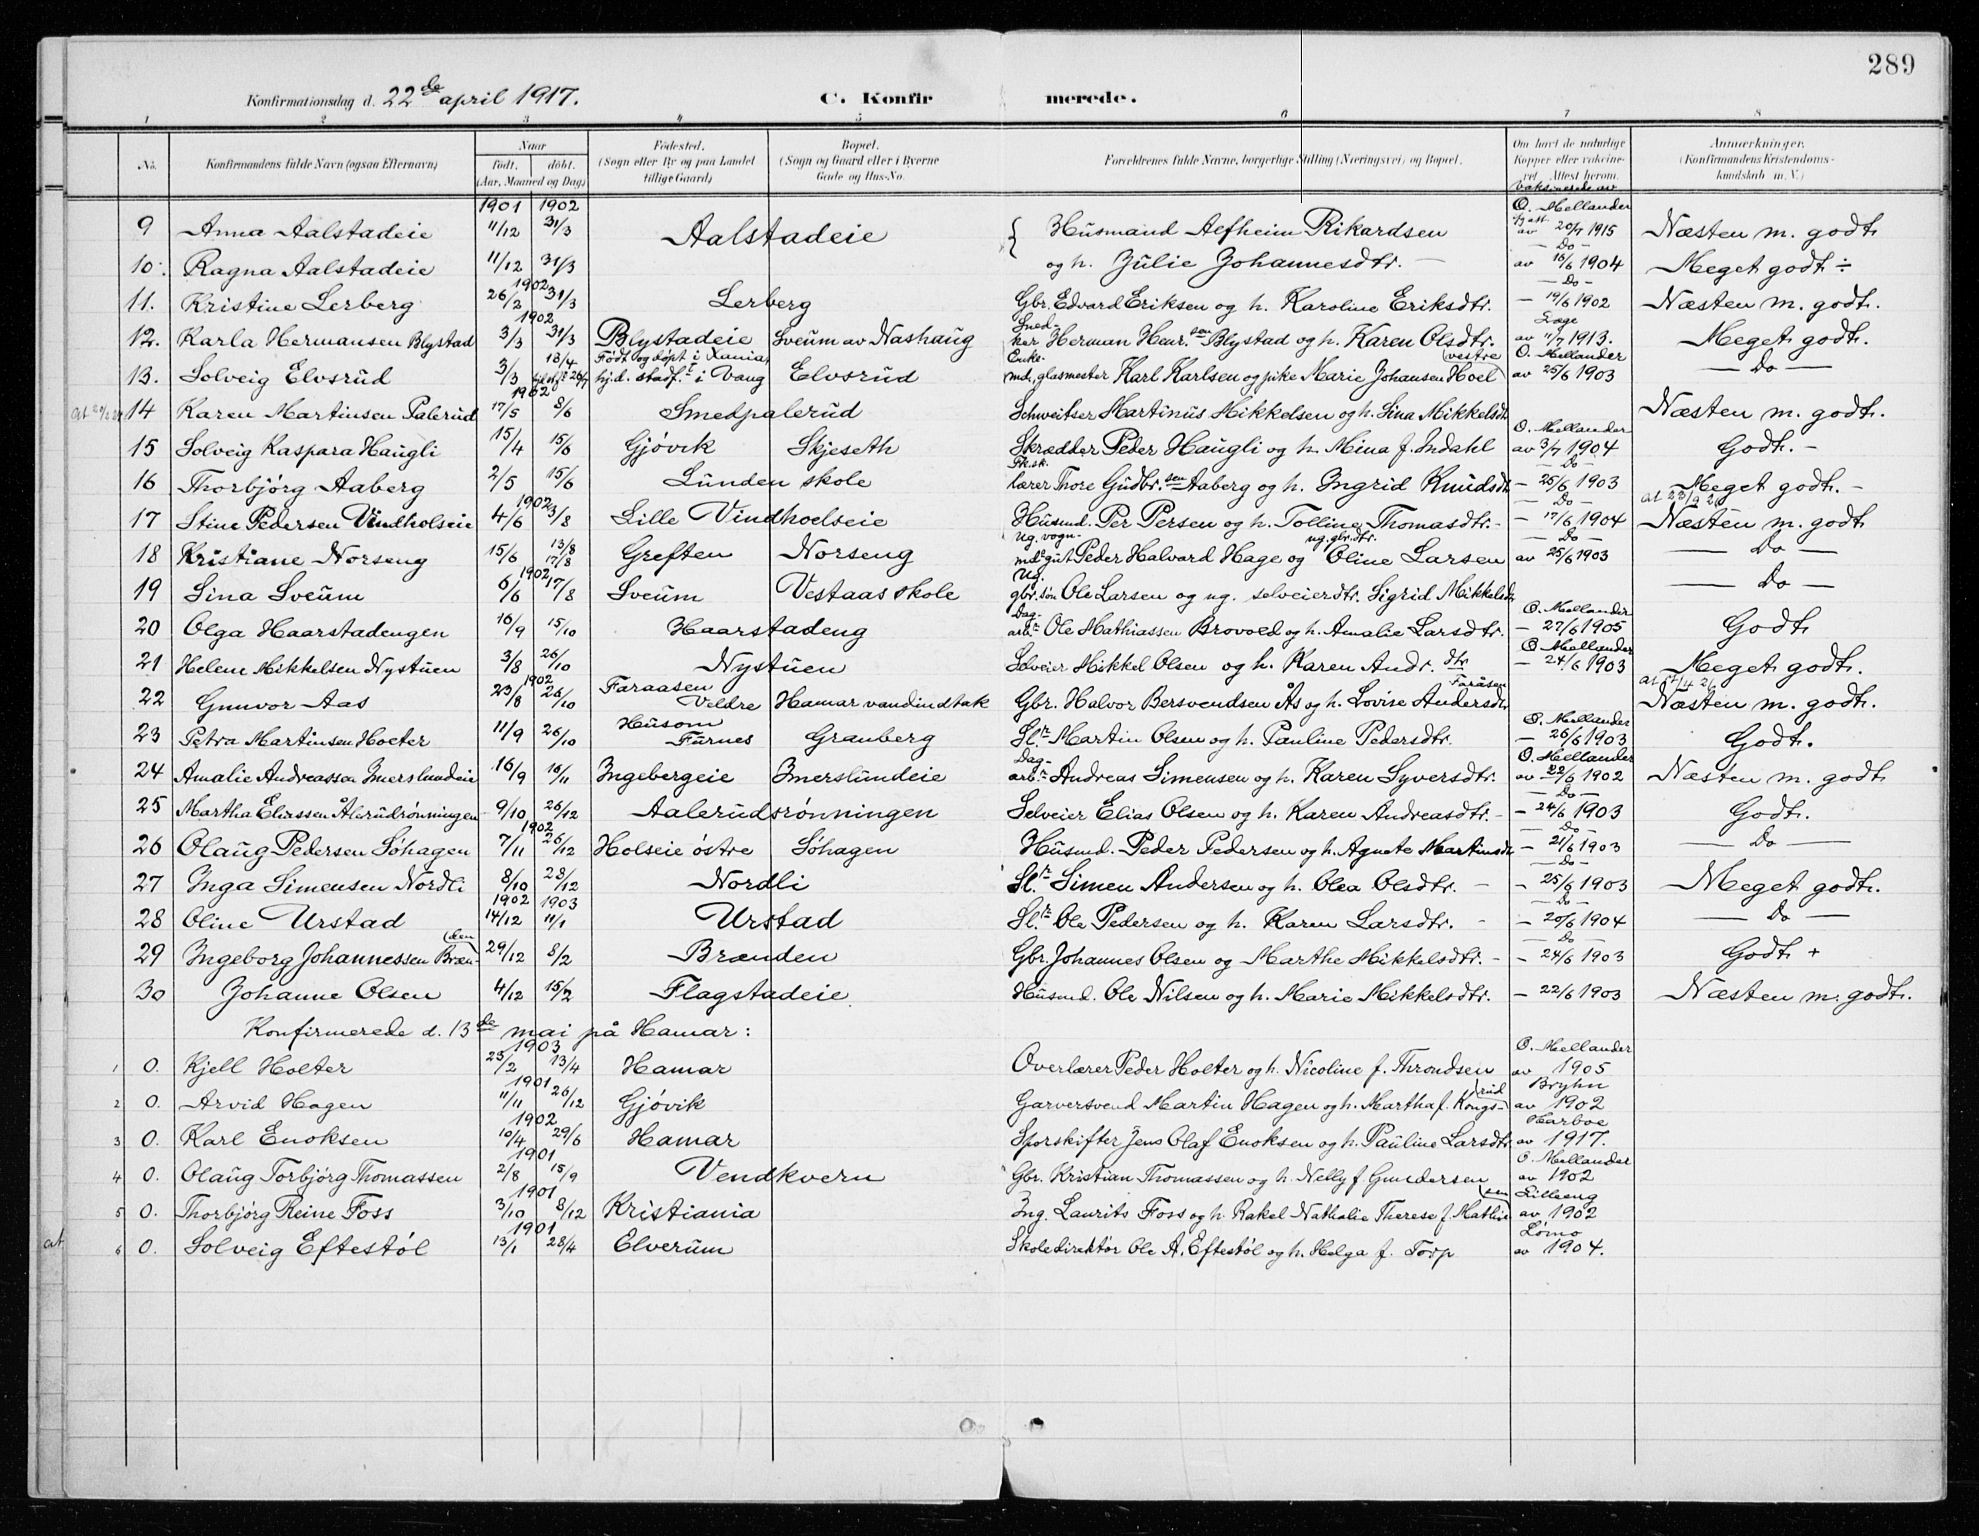 289
Konfirmationsdag d. 22de april 1917. C. Konfirmerede.
1 2 3 4 5 6 7 8
No. Konfirmandens fulde Navn (ogsaa Efternavn) Naar født. døbt. (Aar, Maaned og Dag) Fødested. (Sogn eller By og paa Landet tillige Gaard) Bopæl. (Sogn og Gaard eller i Byerne Gade og Hus-No. Forældrenes fulde Navne, borgerlige Stilling (Næringsvei) og Bopæl. Om havt de naturlige Kopper eller vakcineret. Attest herom. Anmærkninger. (Konfirmandens Kristendomskundskab m. V.)
1901 1902 Vaksinerede av
9 Anna Aalstadeie 11/12 31/3 Aalstadeie { Husmand Alfheim Rikardsen O. Mellander av 20/7 1915 Næsten m. godt.
10. Ragna Aalstadeie 11/12 31/3 og h. Julie Johannesdtr. — Do — av 16/6 1904 Meget godt ÷
1902
11. Kristine Lerberg 26/2 31/3 Lerberg Gbr. Edvard Eriksen og h. Karoline Eriksdtr. — Do — 19/6 1902 Næsten m. godt.
1902
12. Karla Hermansen Blystad 3/3 31/3 Blystadeie Sveum av Nashaug Snedker Herman Henr.sen Blystad og h. Karen Olsdtr. Læge av 11/7 1913. Meget godt.
13. Solveig Elvsrud 3/3 13/4 Født og døpt i Xania, hj.d. stadf. i Vang Elvsrud Enkemd, glasmester Karl Karlsen og pike Marie Johansen Hoel vestre O. Mellander av 25/6 1903 — Do —
1902
14 Karen Martinsen Palerud 17/5 8/6 Smedpalerud Schweitser Martinus Mikkelsen og h. Lina Mikkelsdtr. Næsten m. godt.
15 Solveig Kaspara Haugli 15/4 15/6 Gjøvik Skjeseth Skrædder Peder Haugli og h. Mina f. Indahl O. Mellander av 3/7 1904 Godt. —
16 Thorbjørg Aaberg 2/5 15/6 Lunden skole lærer Thore Gudbr.sen Aaberg og h. Ingrid Knudsdtr — Do — 25/6 1903 Meget godt. —
1902 at 23/9 20
17 Stine Pedersen Vindholseie 4/6 3/8 Lille Vindhoelseie Husmd. Per Persen og h. Tolline Thomasdtr. — Do — 17/6 1904 Næsten m. godt
18 Kristiane Norseng 15/6 13/8 17/8 Greften Norseng Ug. vognmd.gut Peder Halvard Hage og ug. gbr.dtr. Oline Larsen — Do — av 25/6 1903 — Do —
1902
19 Lina Sveum 6/6 17/8 Sveum Vestaas skole Ug. gbr.søn Ole Larsen og ug. selveierdtr. Sigrid Mikkelsdtr — Do —
20 Olga Haarstadengen 16/9 15/10 Haarstadeng Dagarb.r Ole Mathiassen Brovoed og h. Amalie Larsdtr. O. Mellander — 27/6 1905 Godt
21 Helene Mikkelsen Nystuen 3/8 26/10 Nystuen Selveier Mikkel Olsen og h. Karen Andr.dtr O. Mellander — 24/6 1903 Meget godt.
1902
22 Gunvor Aas 23/8 26/10 Faraasen Veldre Hamar vandindtak Gbr. Halvor Bersvendsen Ås og h. Lovise Andersdtr Faråsen Næsten m. godt.
23 Petra Martinsen Hoeter 11/9 26/10 Husom Furnes Granberg Sl.r Martin Olsen og h. Pauline Pedersdtr. O. Mellander — 26/6 1903 Godt.
24 Amalie Andreassen Imerslundeie 16/9 16/11 Ingebergeie Imerslundeie Dagarb.r Andreas Simensen og h. Karen Syversdtr. O. Mellander av 22/6 1902 Næsten m. godt
25 Martha Eliassen Ålerudrønningen 9/10 26/12 Aalerudsrønningen Selveier Elias Olsen og h. Karen Andreasdtr. — Do — 24/6 1903 Godt.
1902
26 Olaug Pedersen Søhagen 7/11 26/12 Holseie østre Søhagen Husmd. Peder Pedersen og h. Agnete Martinsdtr — Do — 21/6 1903 — Do —
27 Inga Simensen Nordli 8/10 28/12 Nordli Sl.r Simen Andersen og h. Olea Olsdtr. — Do — 25/6 1903 Meget godt.
1902 1903
28 Oline Urstad 14/12 11/1 Urstad Sl.r Ole Pedersen og h. Karen Larsdtr. — Do — 20/6 1904 — Do —
29 Ingeborg Johannessen Brænden 29/12 8/2 Brænden Gbr. Johannes Olsen og Marthe Mikkelsdtr. — Do — 24/6 1903 Godt +
30 Johanne Olsen 4/12 15/2 Flagstadeie. Husmd. Ole Nilsen og h. Marie Mikkelsdtr. — 22/6 1903 Næsten m. godt.
Konfirmerede d. 13de mai på Hamar:
1903
1 0. Kjell Holter 23/2 13/4 Hamar Overlærer Peder Holter og h. Nicoline f. Throndsen O. Mellander av 1905
1901
2 0. Arvid Hagen 11/11 26/12 Gjøvik Garversvend Martin Hagen og h. Martha f. Kongsrud Bryhn av 1902
1902
3 0. Karl Enoksen 10/4 29/6 Hamar Sporskifter Jens Olaf Enoksen og h. Pauline Larsdtr Harboe av 1917.
1901
4 0. Olaug Torbjørg Thomassen 2/8 15/9 Vendkvern Gbr. Kristian Thomassen og h. Nelly f. Gundersen O. Mellander av 1902
1901
5 0. Thorbjørg Reine Foss 3/10 8/12 Kristiania Ing. Laurits Foss og h. Rakel Nathalie Therese f. Mathisen Lilleeng av 1902
1901
at 6 0. Solveig Eftestøl 13/1 28/4 Elverum Skoledirektør Ole A. Eftestøl og h. Helga f. Torp Lømo av 1904.